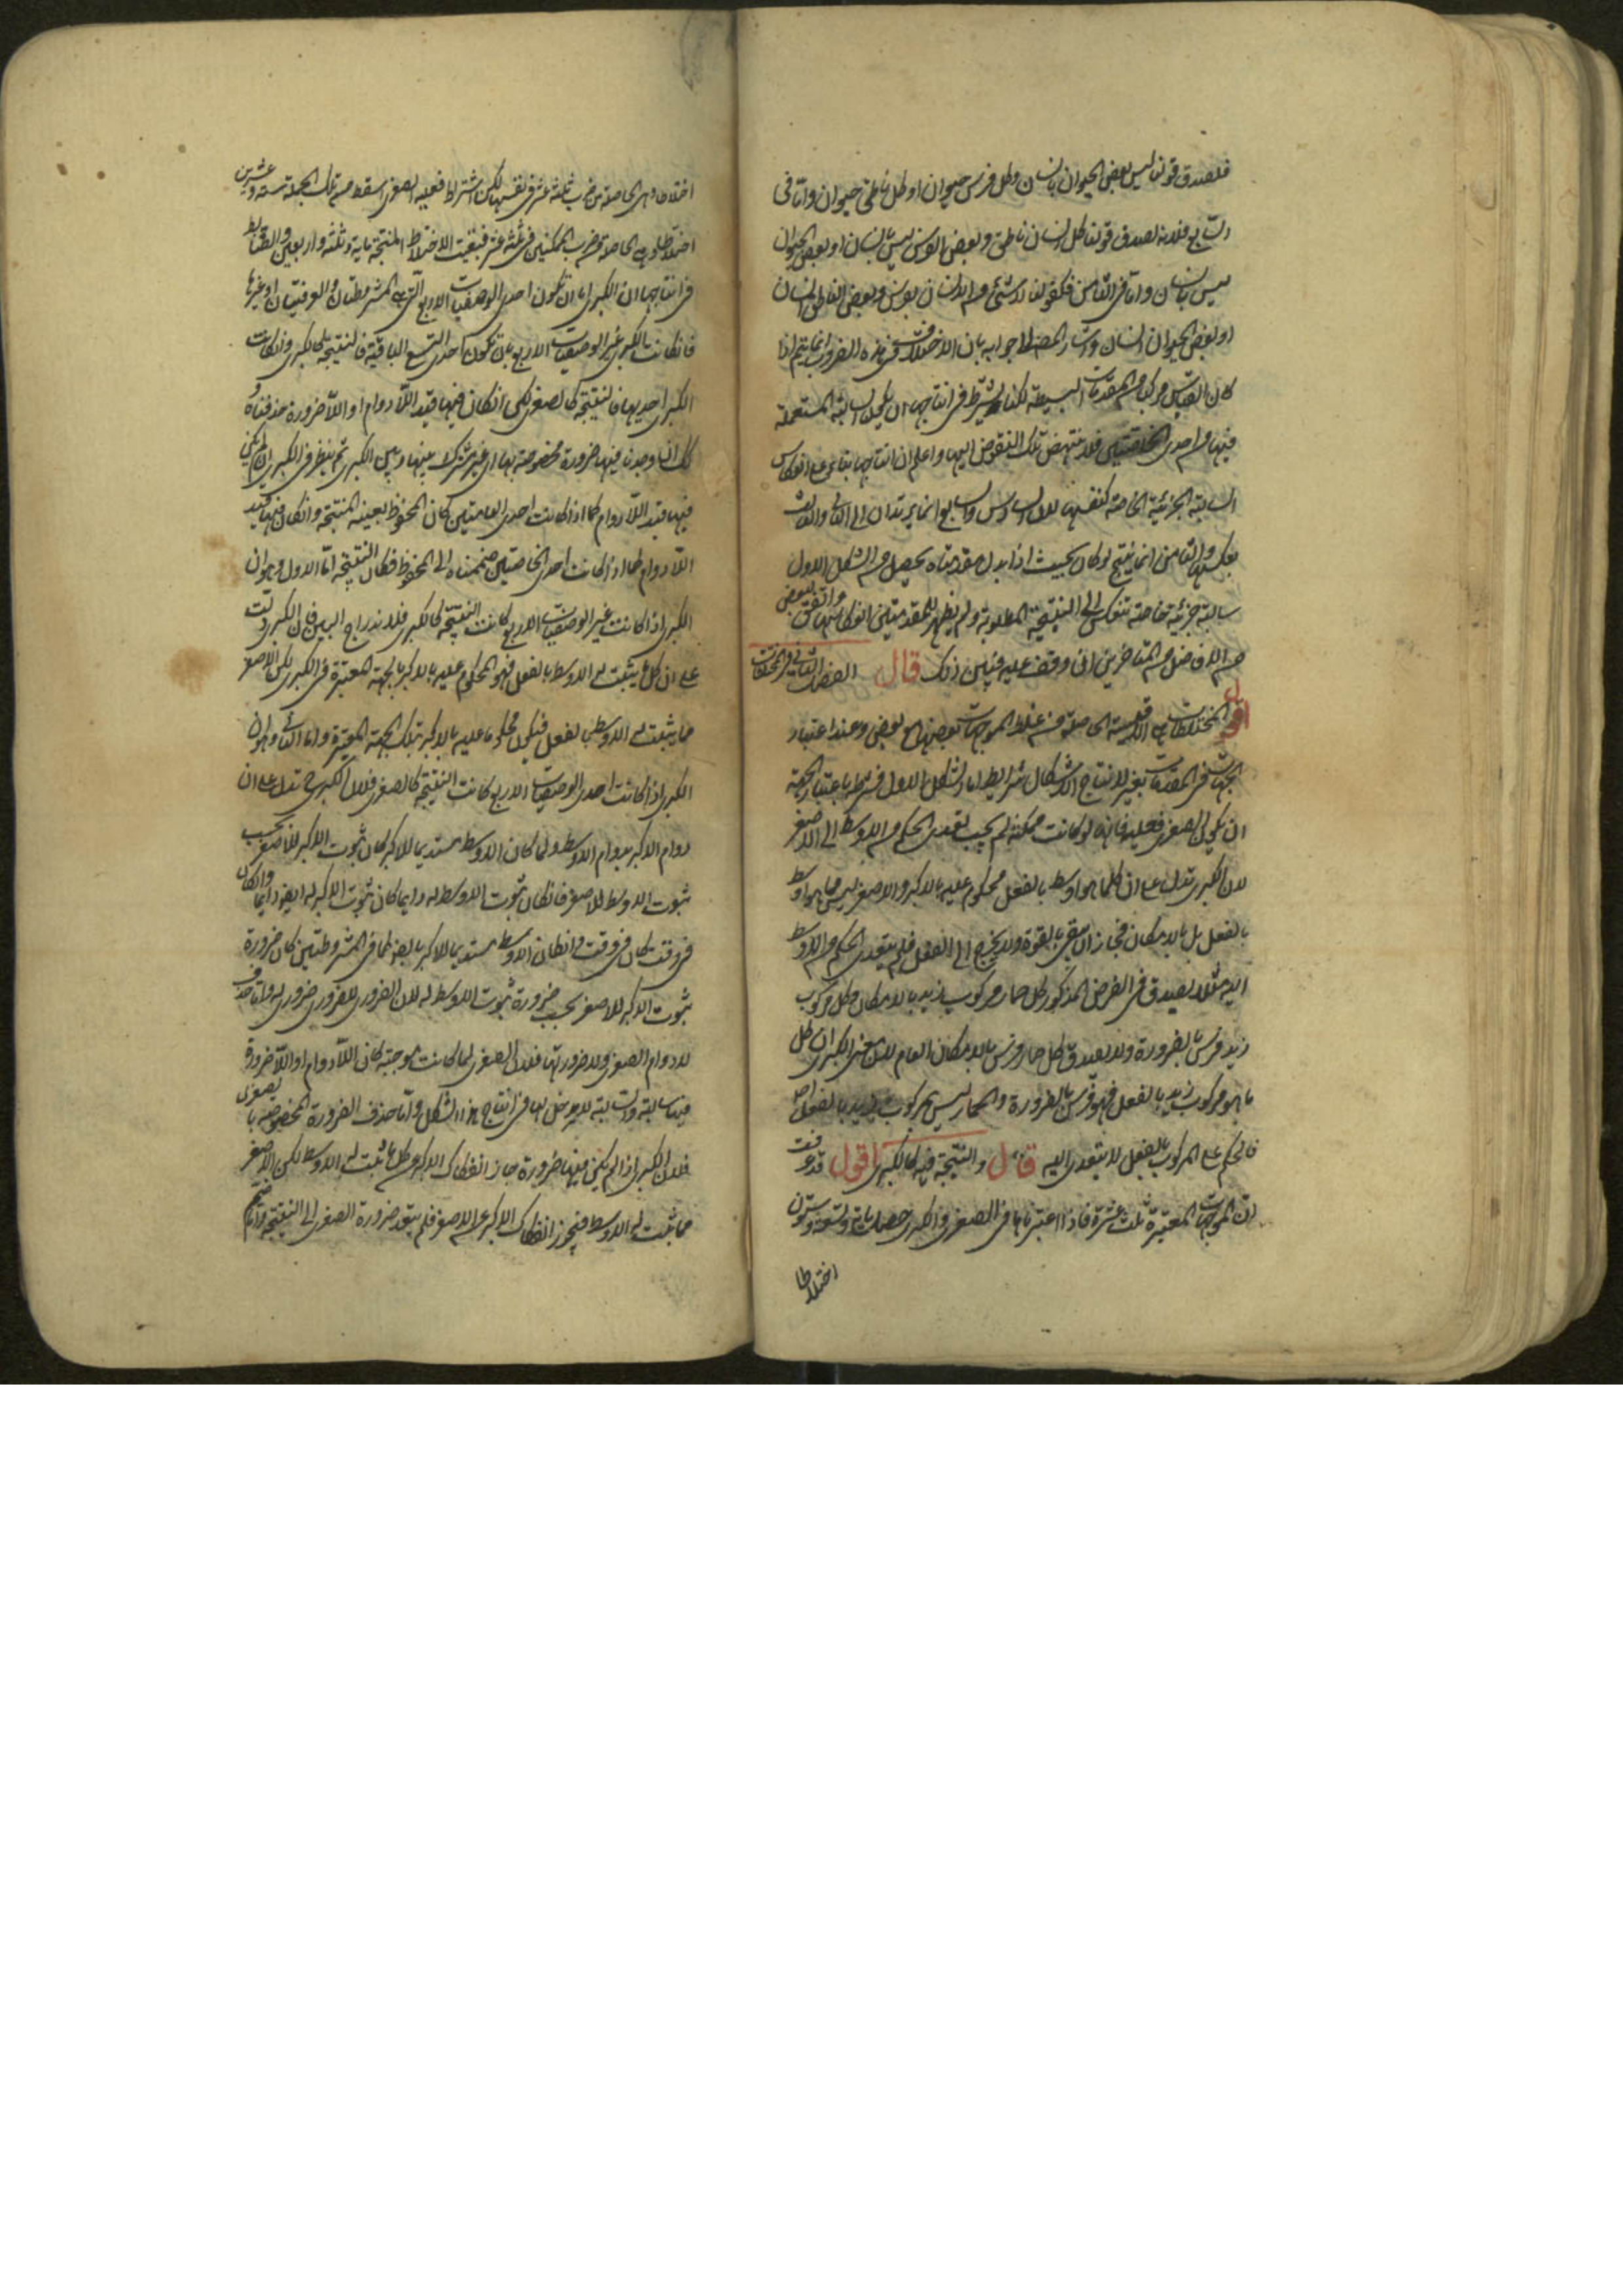 فلصدق قولنا ليس بعض الحيوان بانسان وكل فرس حيوان او كل ناطق حيوان واما فى
السابع فلانه لصدق قولنا كل انسان ناطق وبعض الفرس ليس بانسان او بعض الحيوان
ليس بانسان واما فى الثامن فلقولنا لا شئ من الانسان بفرس وبعض الناطق انسان
او بعض الحيوان انسان واشار المص الى جوابه بان الاختلاف فى هذه الضروب انما يتم اذا
كان القياس مركبا من المقدمات البسيطة لكنا نشترط فى انتاجها ان يكون السالبة المستعملة
فيها من احدى الخاصتين فلا ينتهض تلك النقوض اليها واعلم ان انتاجها بناء على انعكاس
السالبة الجزئية الخاصة كنفسها لان السادس والسابع انما يرتدان الى الثانى والثالث
بعكسها والثامن انما ينتج لو كان بحيث اذا بدل مقدمتاه يحصل من الشكل الاول
سالبة جزئية خاصة تنعكس الى النتيجة المطلوبة ولم يظهر للمتقدمين انعكاسها واتفق لبعض
من الافاضل من المتاخرين ان وقف عليه فتبين ذلك قال الفصل الثانى فى المختلطات
اقول المختلطات هى الاقيسة الحاصلة من خلط الموجهات بعضها مع بعض وعند اعتبار
الجهات فى المقدمات يعتبر لانتاج الاشكال شرائط اما الشكل الاول فشرطه باعتبار الجهة
ان يكون الصغرى فعلية فانه لو كانت ممكنة لم يجب تعدى الحكم من الاوسط الى الاصغر
لان الكبرى تدل على ان كلما هو اوسط بالفعل محكوم عليه بالاكبر والاصغر ليس مما هو اوسط
بالفعل بل بالامكان فجاز ان يبقى بالقوة ولا يخرج الى الفعل فلم يتعد الحكم من الاوسط
اليه مثلا يصدق فى الفرض المذكور كل حمار مركوب زيد بالامكان وكل مركوب
زيد فرس بالضرورة ولا يصدق كل حمار فرس بالامكان العام لان معنى الكبرى ان كل
ما هو مركوب زيد بالفعل فهو فرس بالضرورة والحمار ليس بمركوب زيد بالفعل اصلا
فالحكم على المركوب بالفعل لا يتعدى اليه قال والنتيجة فيه كالكبرى اقول قد عرفت
ان الموجهات المعتبرة ثلث عشرة فاذا اعتبرناها فى الصغرى والكبرى حصل مائة وتسعة وستون
اختلاطا
اختلاطا وهى الحاصلة من ضرب ثلثة عشر فى نفسها لكن اشتراط فعلية الصغرى اسقط من تلك الجملة ستة وعشرين
اختلاطا وهى الحاصلة من ضرب الممكنتين فى ثلثة عشر فبقيت الاختلاطات المنتجة مائة وثلثة واربعين والضابط
فى انتاجها ان الكبرى اما ان تكون احدى الوصفيات الاربع التى هى المشروطتان والعرفيتان او غيرها
فان كانت الكبرى غير الوصفيات الاربع بان تكون احدى التسع الباقية فالنتيجة كالكبرى وان كانت
الكبرى احديها فالنتيجة كالصغرى لكن ان كان فيها قيد اللادوام او اللاضرورة حذفناه
كذا ان وجد فيها ضرورة مخصوصة بها اى غير مشتركة بينها وبين الكبرى ثم ينظر فى الكبرى ان لم يكن
فيها قيد اللادوام كما اذا كانت احدى العامتين كان المحفوظ بعينه النتيجة وان كان فيها قيد
اللادوام كما اذا كانت احدى الخاصتين ضممناه الى المحفوظ فكان النتيجة اما الاول وهو ان
الكبرى اذا كانت غير الوصفيات الاربع كانت النتيجة كالكبرى فلاندراج البين فان الكبرى دلت
على ان كل ما يثبت له الاوسط بالفعل فهو محكوم عليه بالاكبر بالجهة المعتبرة فى الكبرى لكن الاصغر
مما يثبت له الاوسط بالفعل فيكون محكوما عليه بالاكبر بتلك الجهة المعتبرة واما الثانى وهو ان
الكبرى اذا كانت احدى الوصفيات الاربع كانت النتيجة كالصغرى فلان الكبرى ح تدل على ان
دوام الاكبر بدوام الاوسط ولما كان الاوسط مستديما للاكبر كان ثبوت الاكبر للاصغر بحسب
ثبوت الاوسط للاصغر فان كان ثبوت الاوسط له دايما كان ثبوت الاكبر له ايضا دايما وان كان
فى وقت كان فى وقت وان كان الاوسط مستديما للاكبر بالضرورة كما فى المشروطتين كان ضرورة
ثبوت الاكبر للاصغر بحسب ضرورة ثبوت الاوسط له لان الضرورى للضرورى ضرورى له واما حذف
لا دوام الصغرى ولا ضرورتها فلان الصغرى لما كانت موجبة كان اللادوام او اللاضرورة
فيها سالبة والسالبة لا دخل لها فى انتاج هذا الشكل واما حذف الضرورة المخصوصة بالصغرى
فلان الكبرى اذا لم يكن فيها ضرورة جاز انفكاك الاكبر عن كل ما ثبت له الاوسط لكن الاصغر
مما ثبت له الاوسط فيجوز انفكاك الاكبر عن الاصغر فلم يتعد ضرورة الصغرى الى النتيجة واما ضم